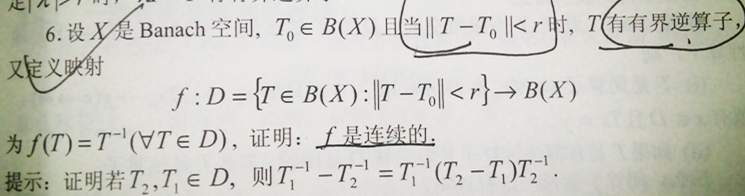 6. 设 X 是 Banach 空间, T₀ ∈ B(X) 且当 ‖T − T₀‖ < r 时, T 有有界逆算子,
又定义映射
f : D = {T ∈ B(X) : ‖T − T₀‖ < r} → B(X)
为 f(T) = T⁻¹ (∀T ∈ D), 证明: f 是连续的.
提示: 证明若 T₂, T₁ ∈ D, 则 T₁⁻¹ − T₂⁻¹ = T₁⁻¹(T₂ − T₁)T₂⁻¹.